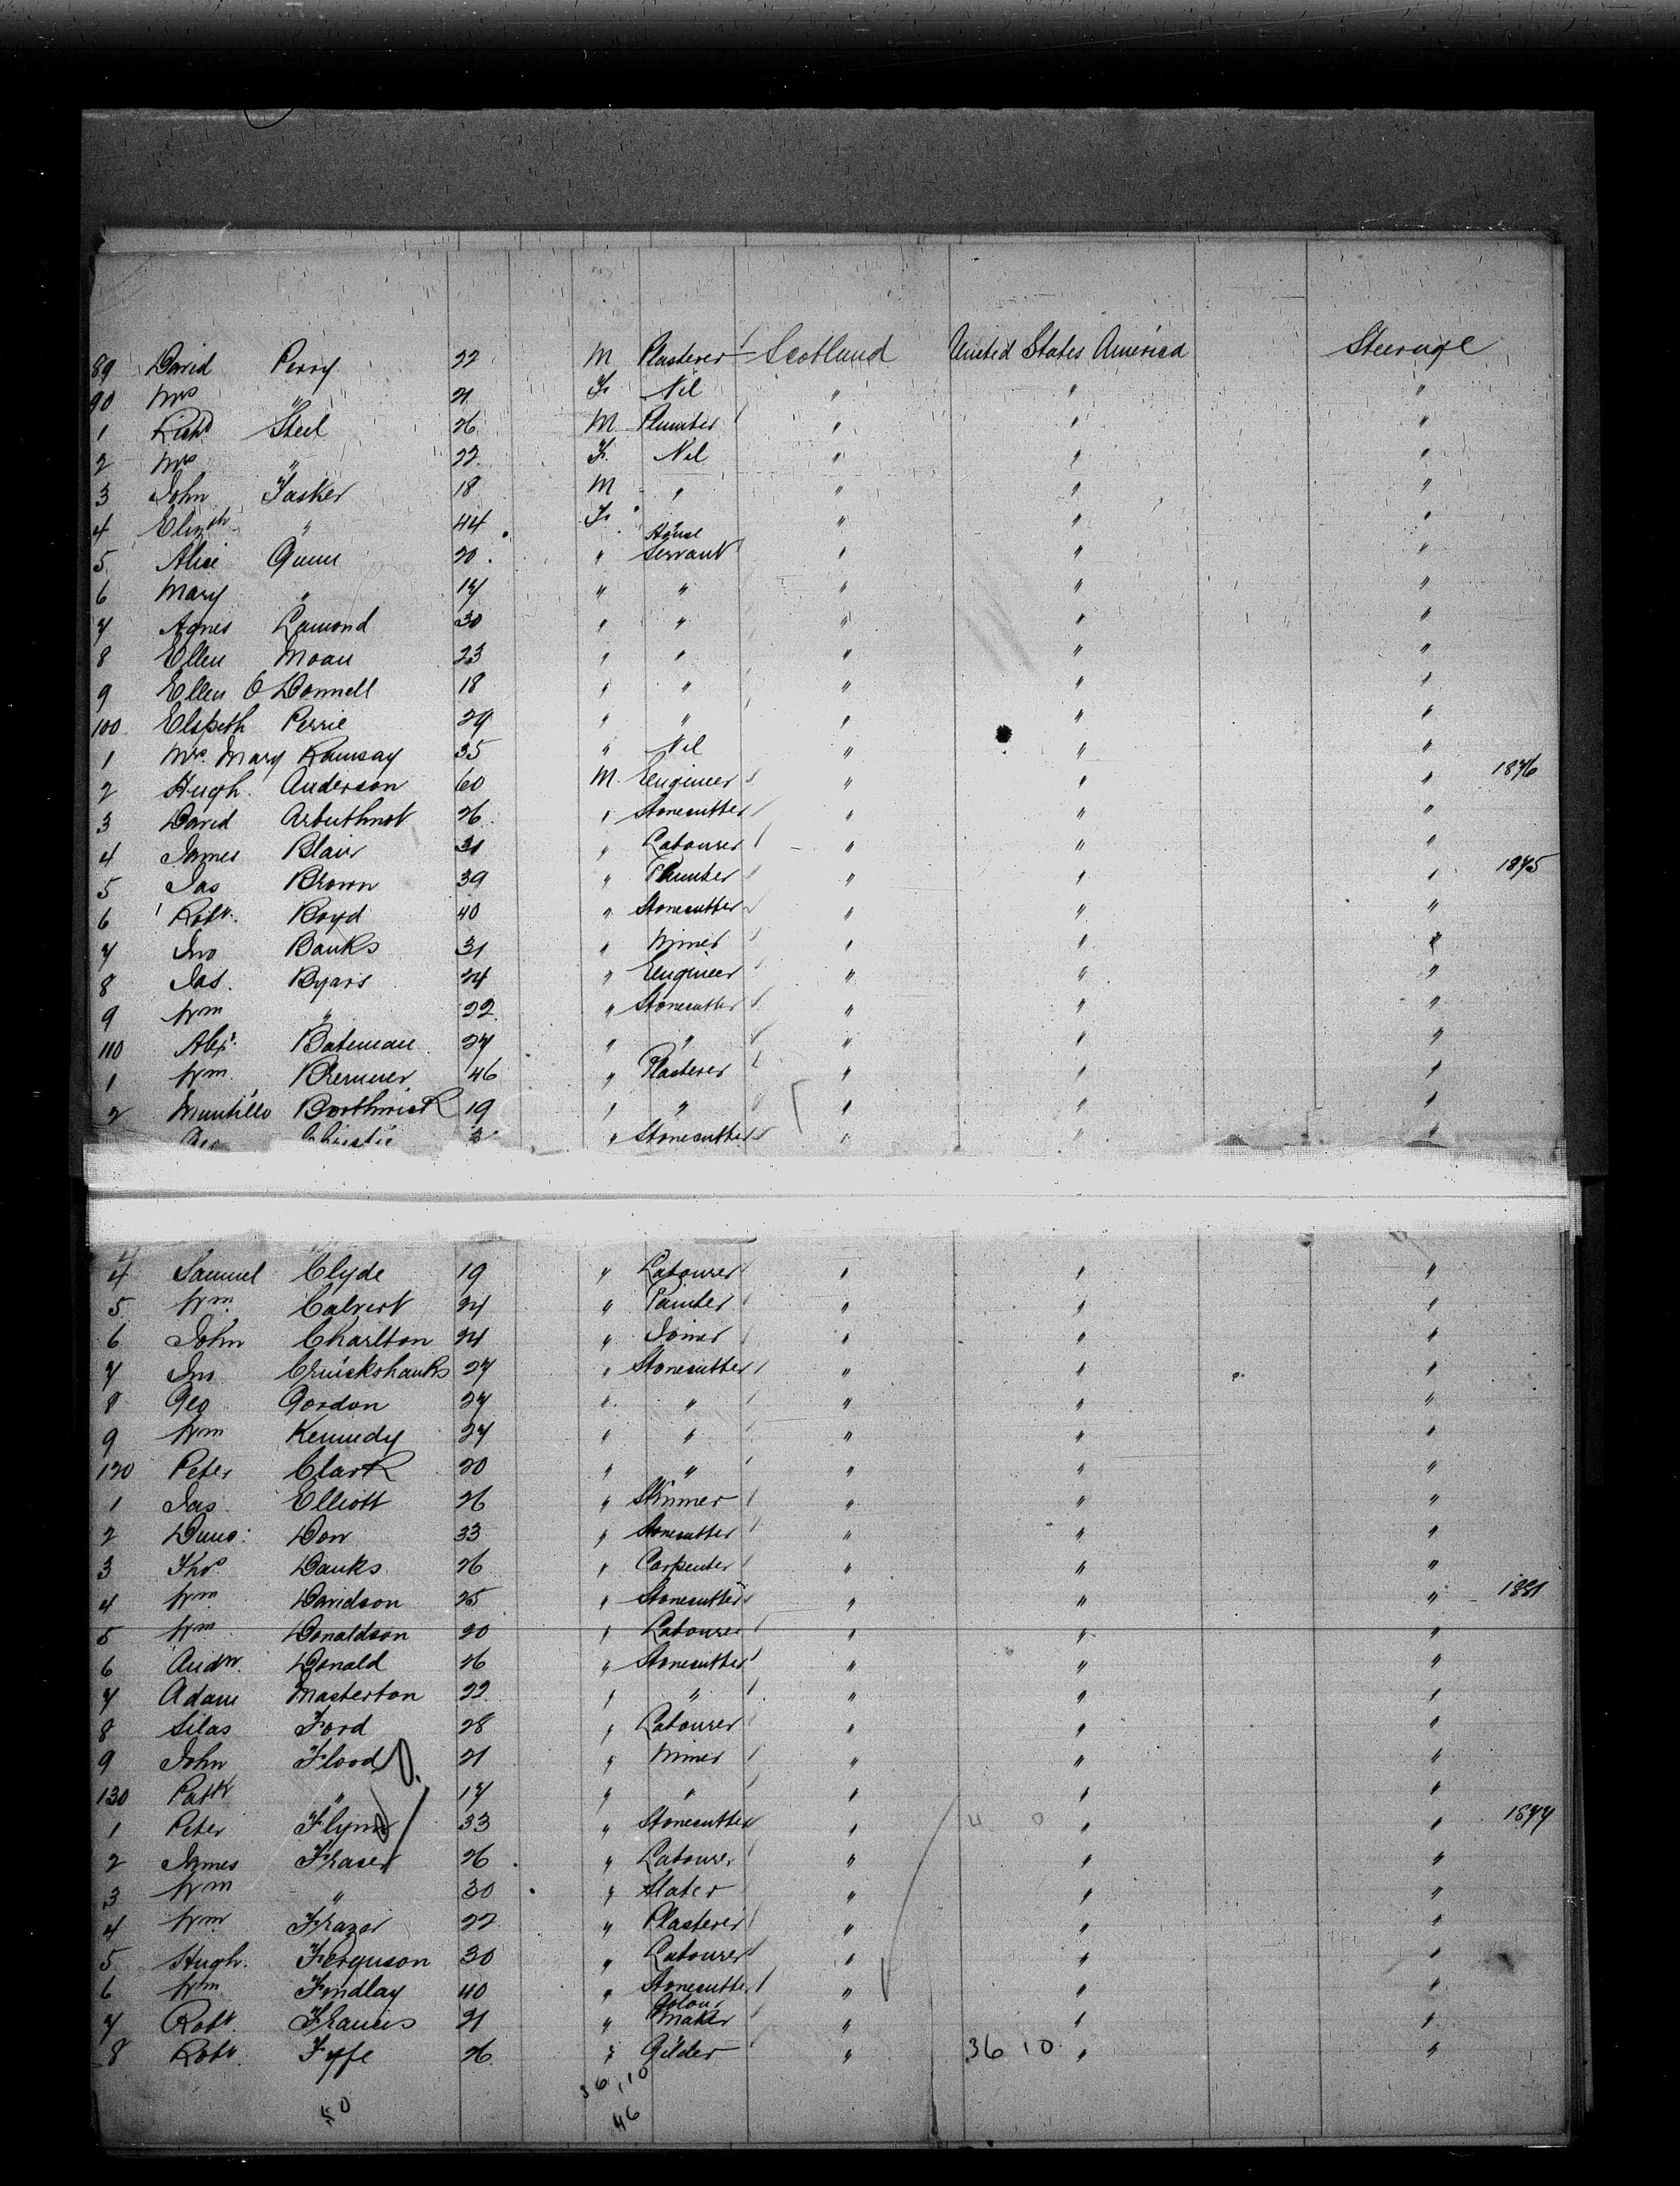 89 David Perry 22 M Plasterer Scotland United States America Steerage
90 Mrs " 21 F. Nil " " "
1 Richd Steel 26 M Plumber " " "
2 Mrs " 22 F. Nil " " "
3 John Tasker 18 M " " " "
4 Elizth " 44 F. " " "
5 Alice Gunn 20 " House Servant " " "
6 Mary " 17 " " " " "
7 Agnes Lamond 30 " " " " "
8 Ellen Moan 23 " " " " "
9 Ellen O Donnell 18 " " " " "
100 Elspeth Perrie 29 " " " " "
1 Mrs. Mary Ramsay 35 " Nil " " "
2 Hugh. Anderson 60 M. Engineer " " " 1876
3 David Arbuthnot 26 " Stonecutter " " "
4 James Blair 31 " Labourer " " "
5 Jas Brown 39 " Plumber " " " 1875
6 Robt. Boyd 40 " Stonecutter " " "
7 Jno Banks 31 " Miner " " "
8 Jas. Byars 24 " Engineer " " "
9 Wm " 22 " Stonecutter " " "
110 Alexr. Bateman 27 " " " " "
1 Wm. Bremner 46 " Plasterer " " "
2 Borthwick 19 " " " " "
Geo Christie " Stonecutter " " "
4 Samuel Clyde 19 " Labourer " " "
5 Wm. Calvert 24 " Painter " " "
6 John Charlton 24 " Joiner " " "
7 Jno Cruickshanks 27 " Stonecutter " " "
8 Geo Gordon 27 " " " " "
9 Wm Kennedy 27 " " " " "
120 Peter Clark 20 " " " " "
1 Jas. Elliott 26 " Skinner " " "
2 Dunc: Don 33 " Stonecutter " " "
3 Thos Danks 26 " Carpenter " " "
4 Wm Davidson 25 " Stonecutter " " " 1881
5 Wm. Donaldson 20 " Labourer " " "
6 Andw. Donald 26 " Stonecutter " " "
7 Adam Masterton 22 " " " " "
8 Silas Ford 28 " Labourer " " "
9 John Flood 21 " Miner " " "
130 Patk " 17 " " " " "
1 Peter Flynn 33 " Stonecutter " " " 1877
2 James Fraser 26 " Labourer " " "
3 Wm " 30 " Slater " " "
4 Wm Frazer 22 " Plasterer " " "
5 Hugh. Ferguson 30 " Labourer " " "
6 Wm. Findlay 40 " Stonecutter " " "
7 Robt. Francis 21 " Colour Maker " " "
8 Robt. Fyfe 26 " Gilder " 36 10 " "
36 10
50 46